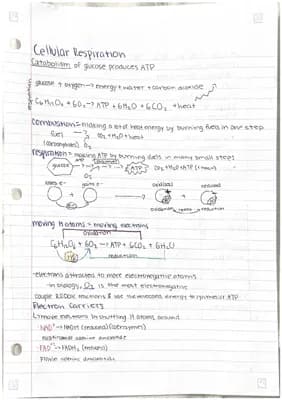 Cellular Respiration
Catabolism of glucose produces ATP
glucose + oxygen → energy + water + carbon dioxide
C6H12O6 + 6O2 → ATP + 6H2O + 6CO2 + heat
Combustion = making a lot of heat energy by burning fuels in one step
fuel → CO2 + H2O + heat
(carbohydrates) O2
respiration = making ATP by burning fuels in many small steps
glucose → → → ATP CO2 + H2O + ATP (+ heat)
O2
loses e- gains e- oxidized reduced
+ → +
oxidation reduction
moving H atoms = moving electrons
oxidation
C6H12O6 + 6O2 → ATP + 6CO2 + 6H2O
reduction
-electrons attracted to more electronegative atoms
-in biology, O2 is the most electronegative
couple REDOX reactions & use the released energy to synthesize ATP
Electron Carriers
↳ move electrons by shuttling H atoms around
NAD+ → NADH (reduced) (coenzymes)
nicotinamide adenine dinucleotide
FAD → FADH2 (reduced)
Flavin adenine dinucleotide